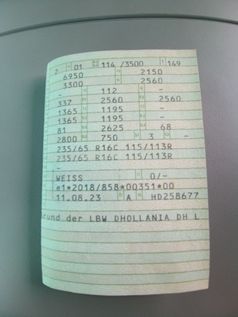 2 01 114 /3500 149
6950 2150
3300 2560
- 112 -
337 2560 2560
1365 1195 -
1365 1195 -
81 2625 68
2800 750 3 -
235/65 R16C 115/113R
-
235/65 R16C 115/113R
-
WEISS 0/-
e1*2018/858*00351*00
11.08.23 A HD258677
rund der LBW DHOLLANIA DH L